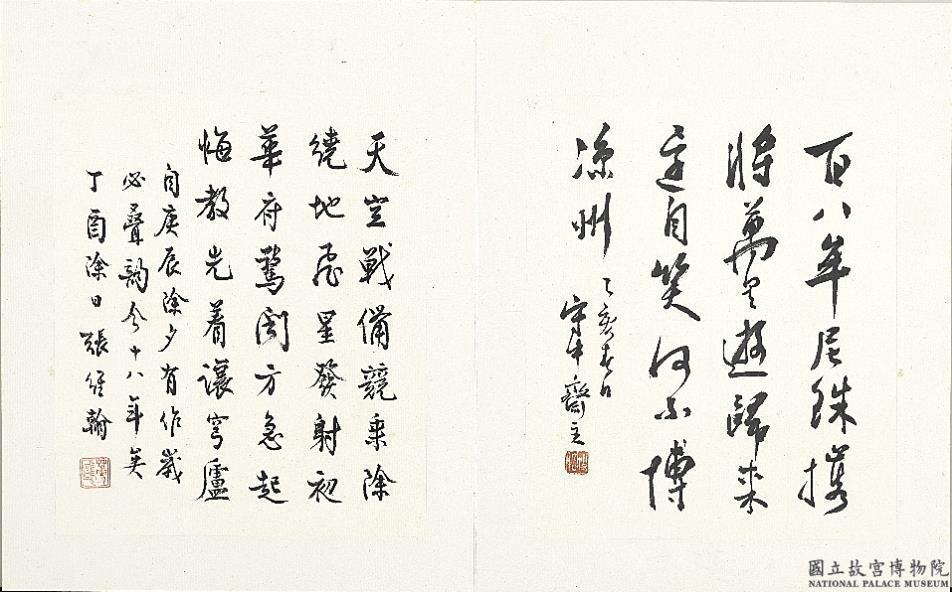 百八年尼珠攜
將萬里遊歸來
還自笑何不博
涼州 乙亥春日
寒齋主
天空戰備競乘除
繞地飛星發射初
華府驚聞方急起
悔教先着讓穹廬
自庚辰除夕有作歲
必疊韻今十八年矣
丁酉除日張維翰
國立故宮博物院
NATIONAL PALACE MUSEUM